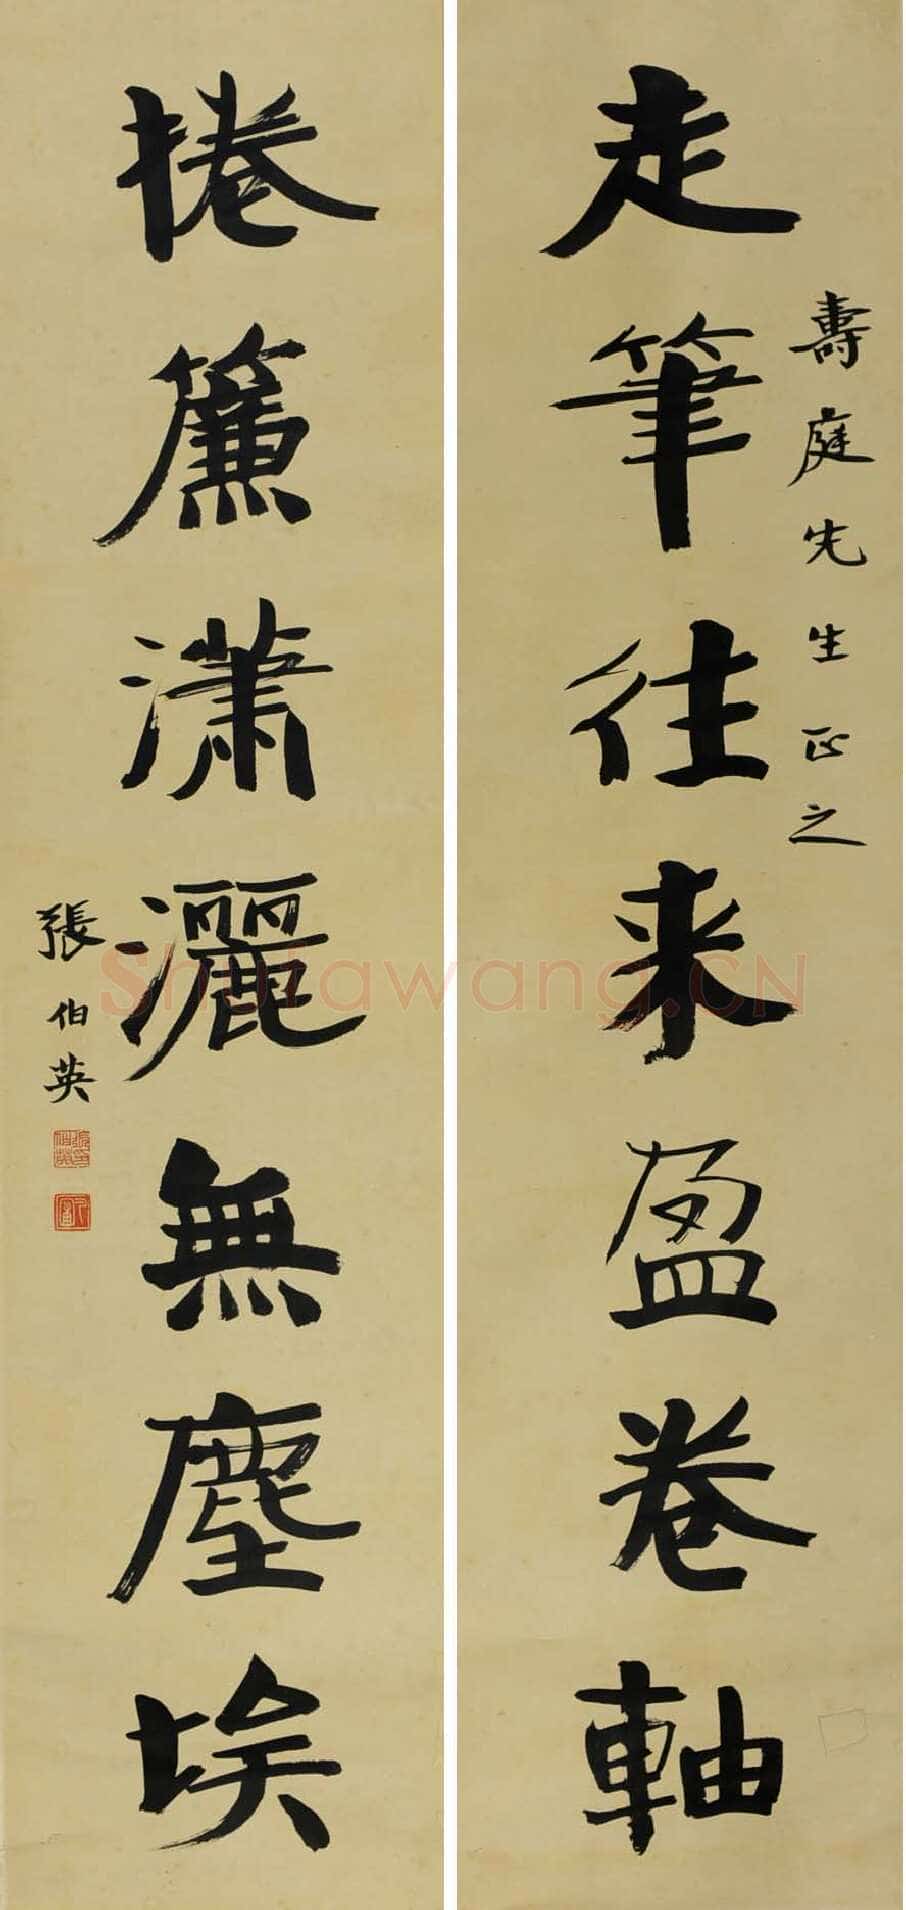 壽庭先生正之
走筆往来盈卷軸
捲簾瀟灑無塵埃
張伯英
Shufawang.CN